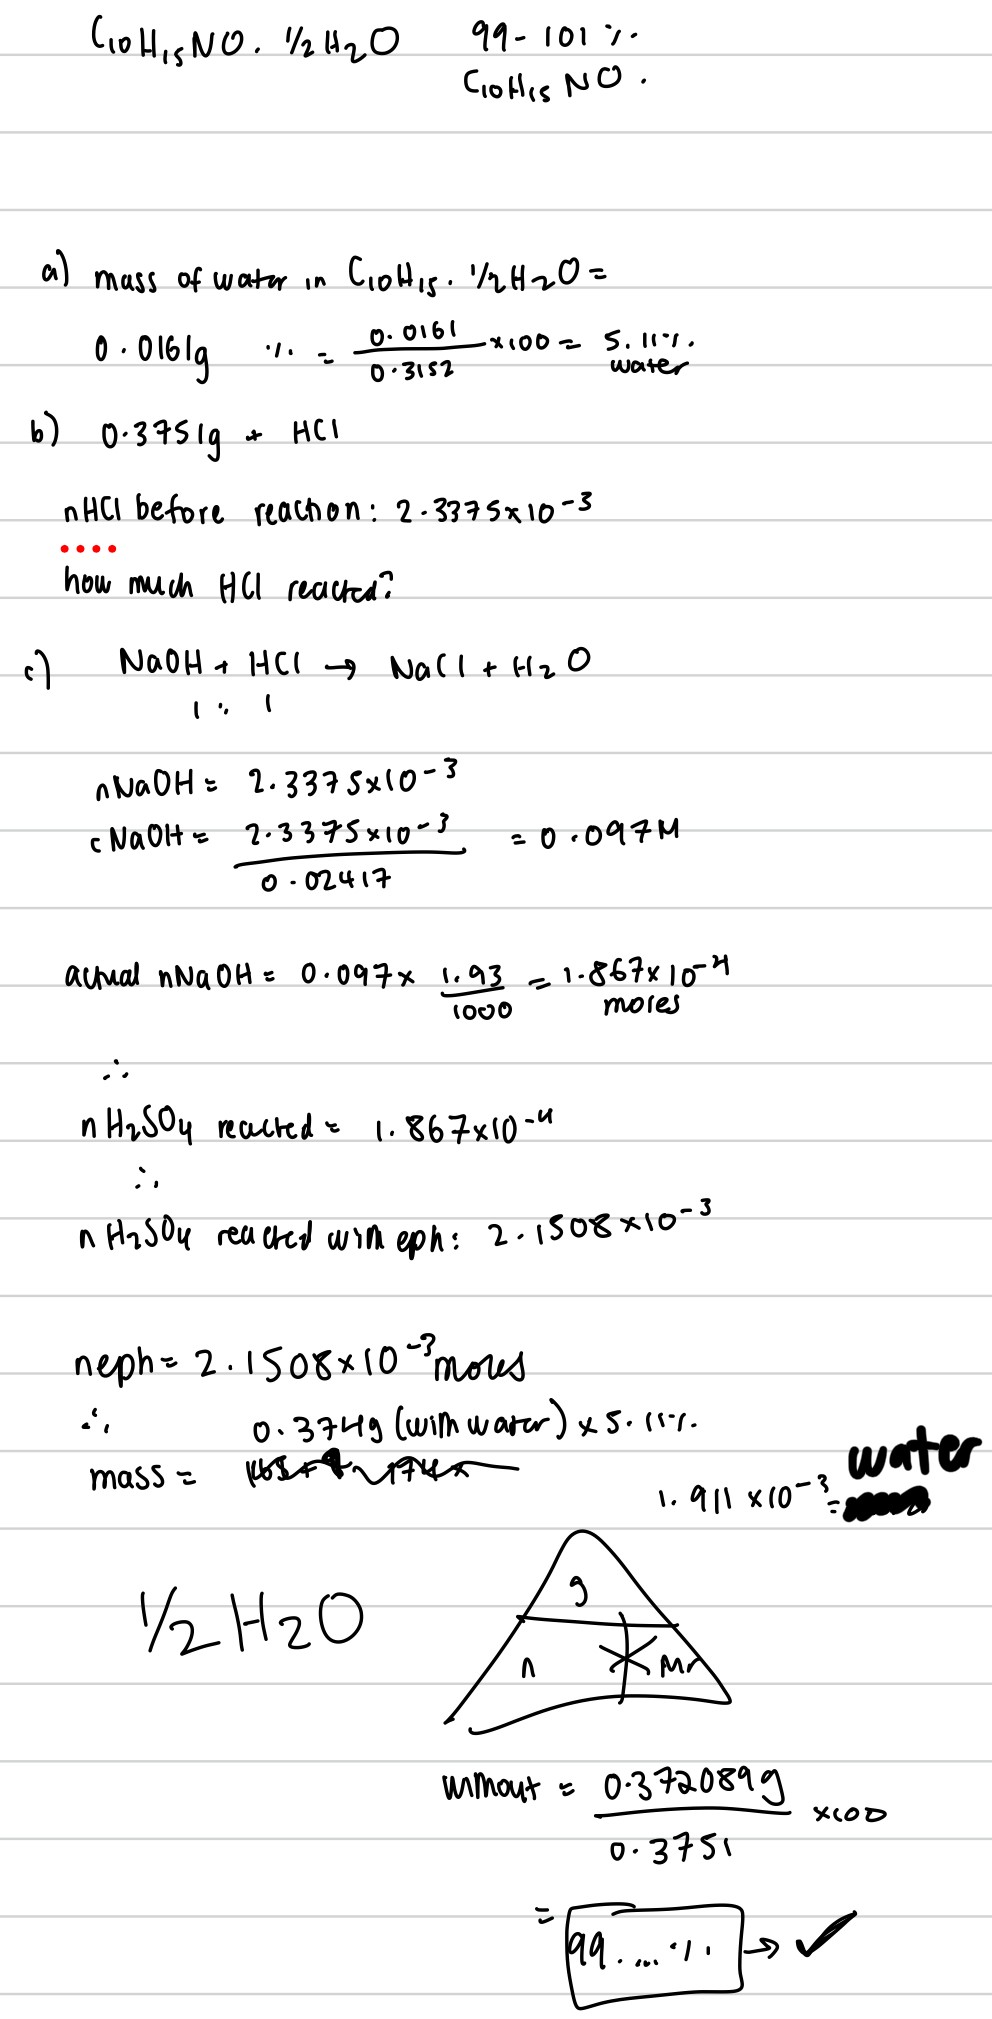 C10H15NO. 1/2H2O 99-101%.
C10H15NO.
a) mass of water in C10H15. 1/2H2O =
0.0161g % = 0.0161/0.3152 x100 = 5.11%. water
b) 0.3751g + HCl
nHCl before reaction: 2.3375x10-3
how much HCl reacted?
c) NaOH + HCl → NaCl + H2O
1 : 1
nNaOH = 2.3375x10-3
cNaOH = 2.3375x10-3/0.02417 = 0.097M
actual nNaOH = 0.097x 1.93/1000 = 1.867x10-4 moles
∴
nH2SO4 reacted = 1.867x10-4
∴
nH2SO4 reacted with eph: 2.1508x10-3
neph = 2.1508x10-3 moles
∴ 0.374g (with water) x 5.11%.
mass =
1.911 x10-3 = water
1/2 H2O
g
n x Mr
without = 0.372089g/0.3751 x100
= 99....%. → ✓